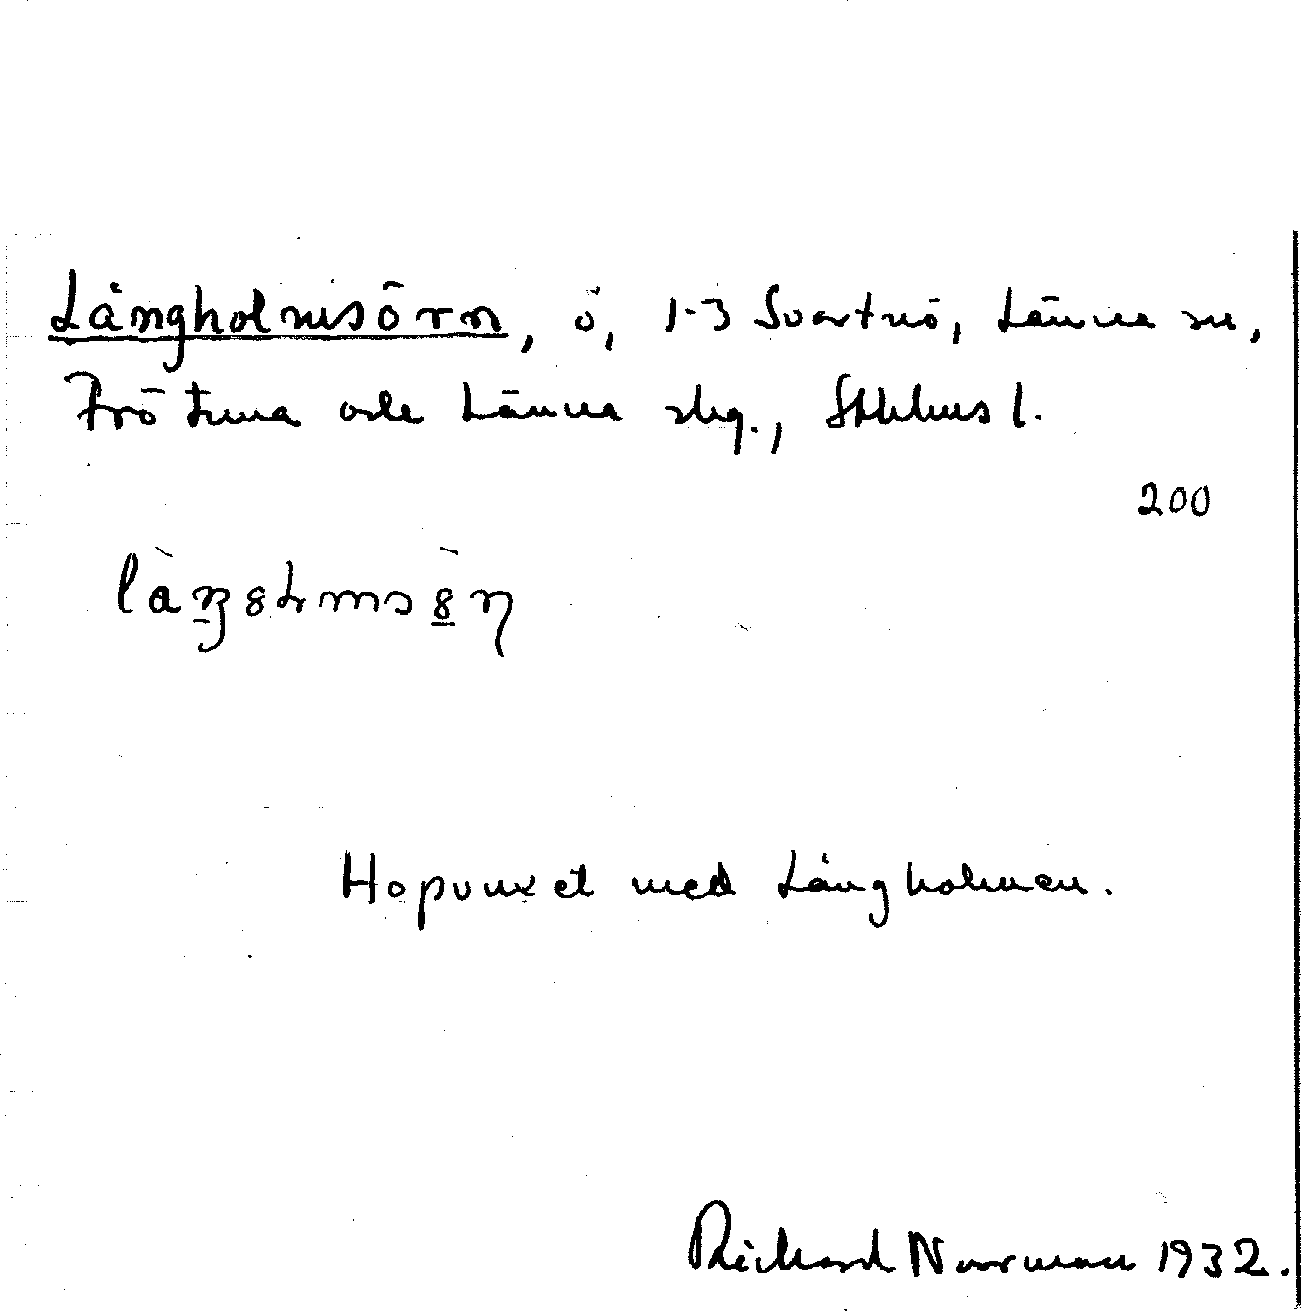 Långholmsörn, ö, 1-3 Svartnö, Länna sn,
Frötuna ocle Länna slg., Sthlms l.
200
Hopvuxet med Långholmen.
Richard Norrman 1932.